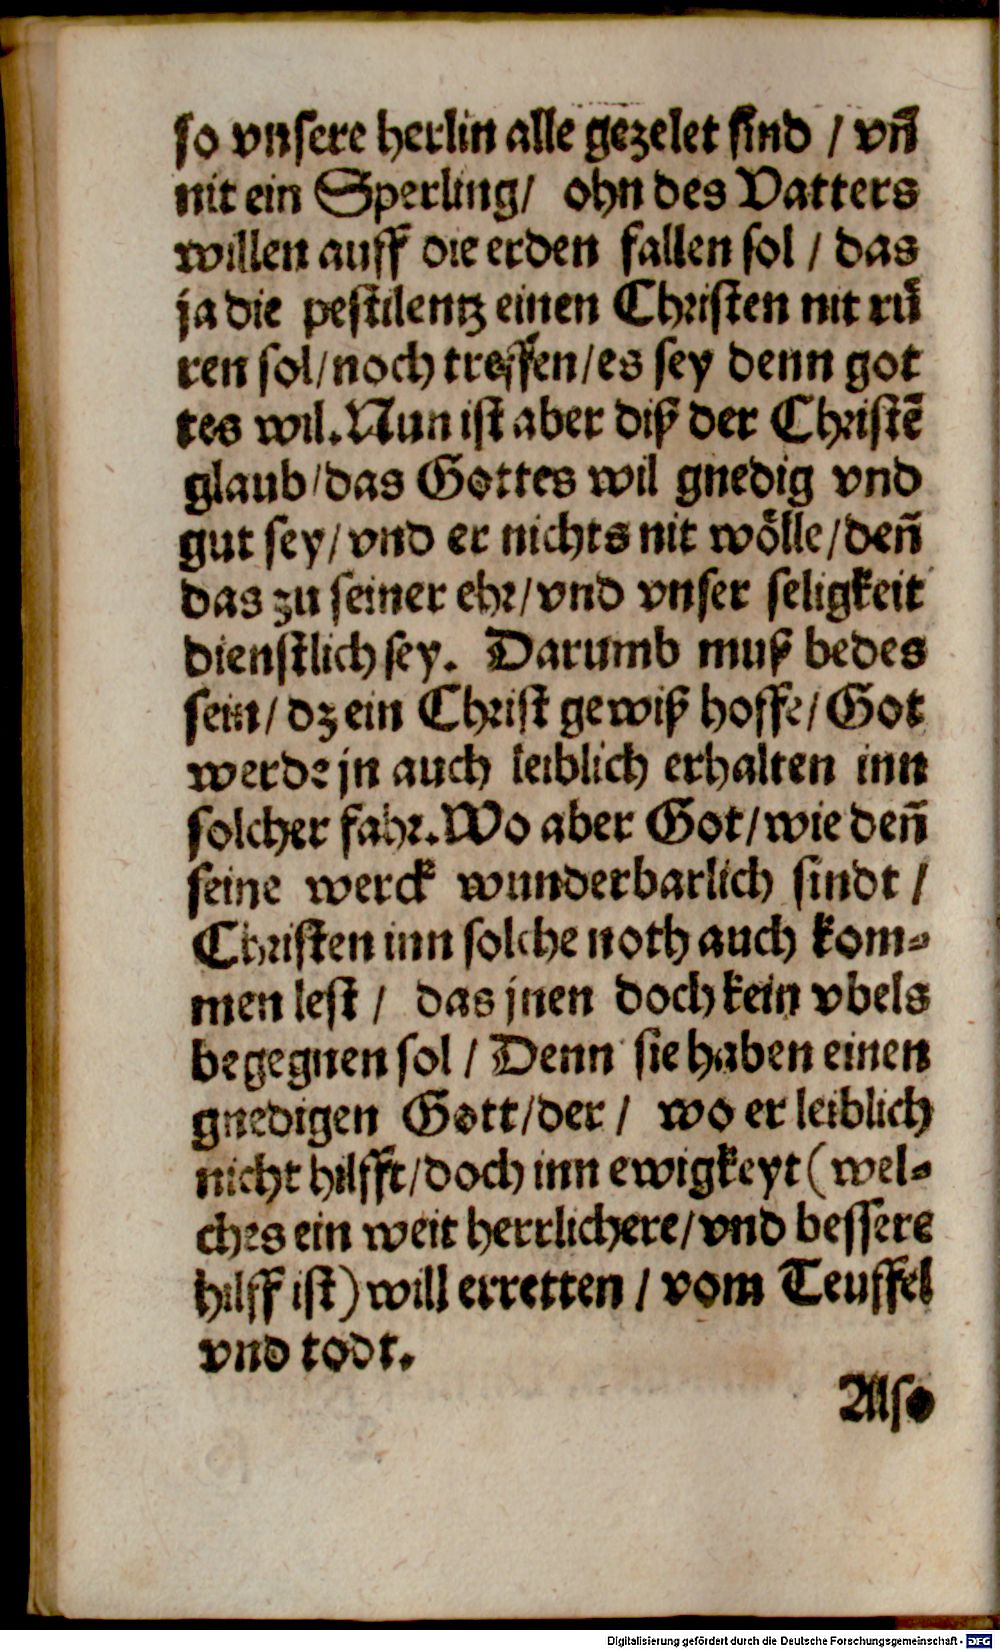 so vnsere herlin alle gezelet sind / vn̄
nit ein Sperling/ ohn des Vatters
willen auff die erden fallen sol / das
ja die pestilentz einen Christen nit ruͤ
ren sol/noch treffen/es sey denn got
tes wil. Nun ist aber diß der Christē
glaub/das Gottes wil gnedig vnd
gut sey/vnd er nichts nit woͤlle/den̄
das zu seiner ehr/vnd vnser seligkeit
dienstlich sey. Darumb muß bedes
sein/ dz ein Christ gewiß hoffe/Got
werde jn auch leiblich erhalten inn
solcher fahr. Wo aber Got/wie den̄
seine werck wunderbarlich sindt /
Christen inn solche noth auch kom⸗
men lest / das jnen doch kein vbels
begegnen sol / Denn sie haben einen
gnedigen Gott/der / wo er leiblich
nicht hilfft/doch inn ewigkeyt (wel⸗
ches ein weit herrlichere/vnd bessere
hilff ist) will erretten / vom Teuffel
vnd todt.
Also
Digitalisierung gefördert durch die Deutsche Forschungsgemeinschaft - DFG